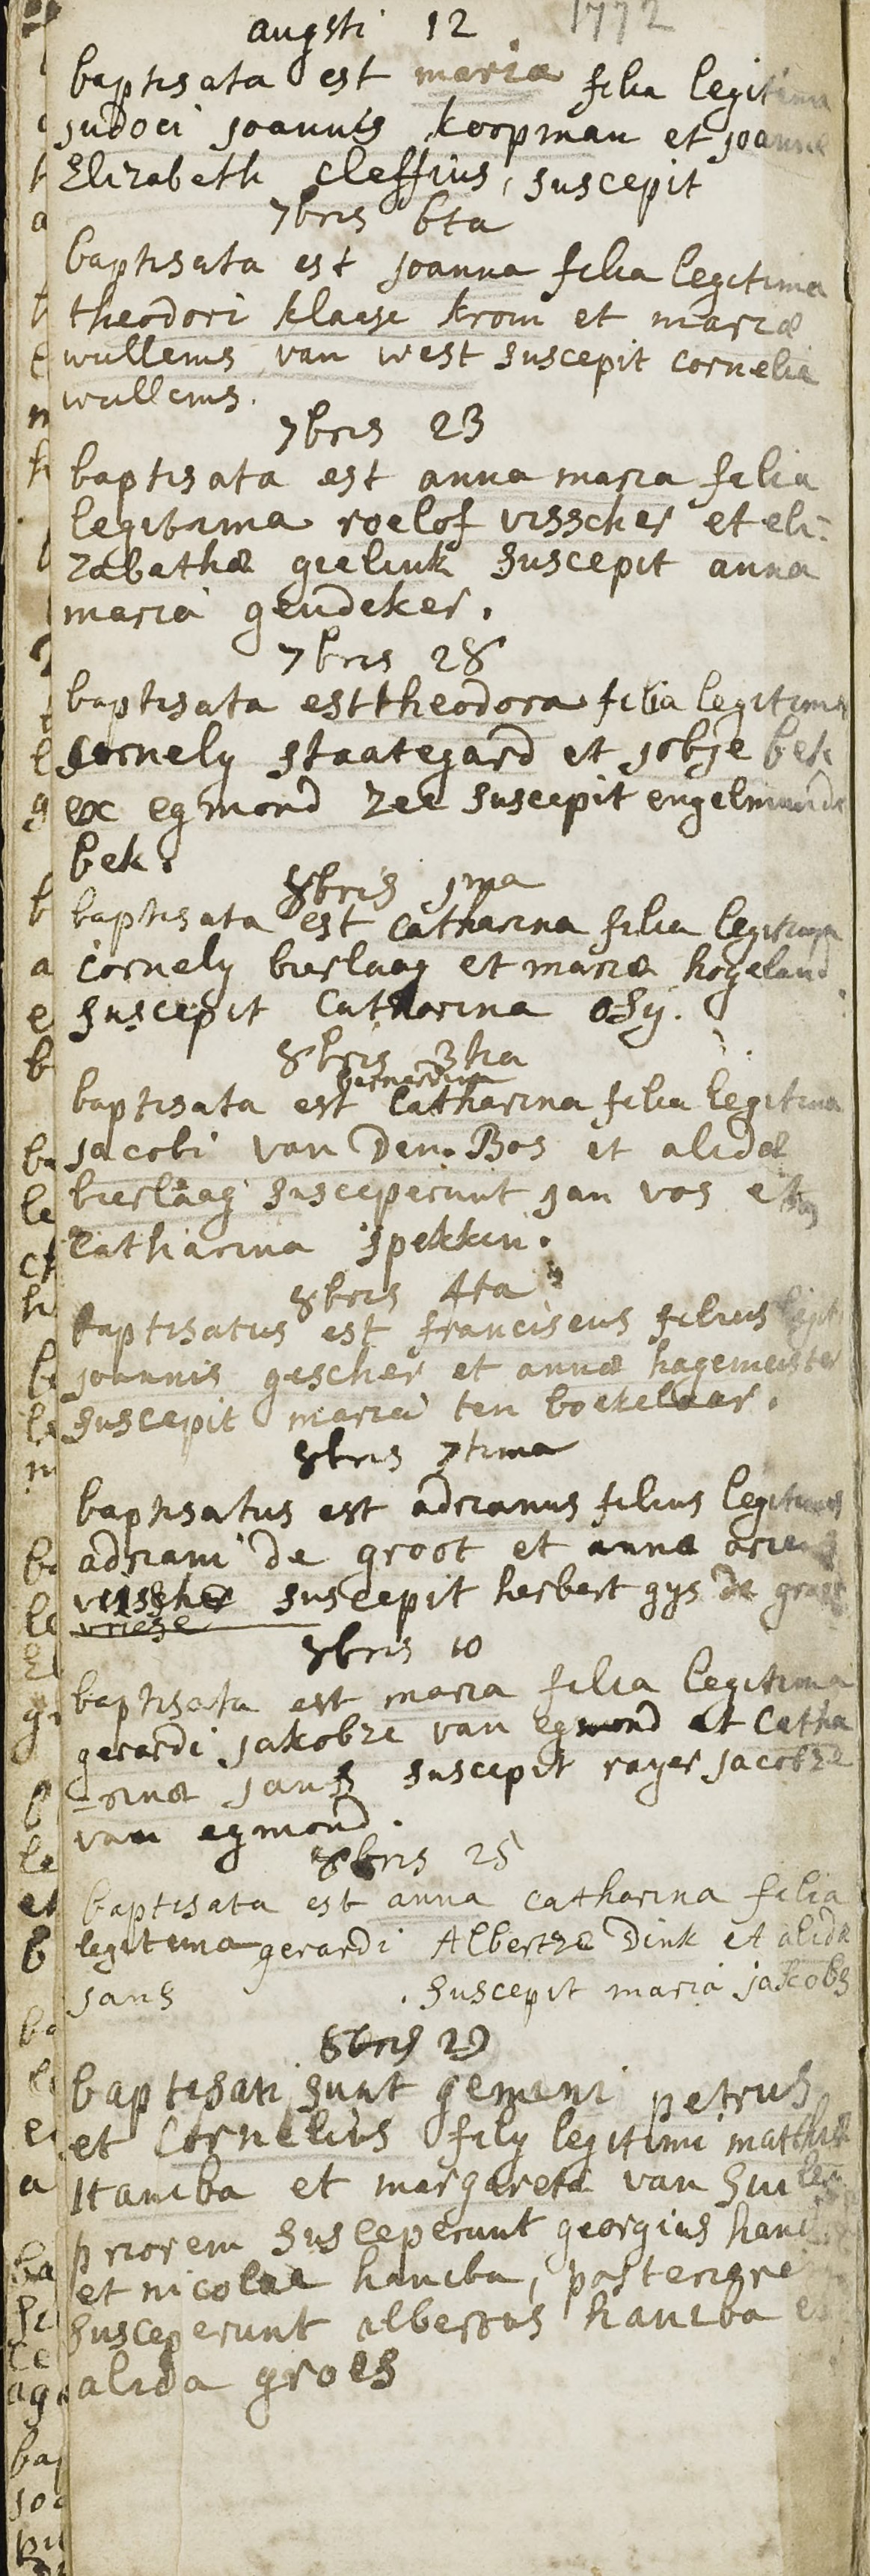 augsti 12 1772
baptisata est maria filia legitima
judoci joannis koopman et joannæ
Elizabeth cleffius, suscepit
7bris 6ta
baptisata est joanna filia legitima
theodori klaese krom et mariæ
willems van west suscepit cornelia
willems.
7bris 23
baptisata est anna maria filia
legitima roelof visscher et eli:
zabathæ gielink suscepit anna
maria geudeker.
7bris 28
baptisata est theodora filia legitima
cornely staategard et jobje bek
ex egmond zee suscepit engelmunda
bek.
8bris 1ma
baptisata est catharina filia legitima
cornely bierlaag et mariæ hogeland
suscepit Catharina osij.
8bris 3tia
bernardina
baptisata est Catharina filia legitima
jacobi van Den Bos et alidæ
bierlaag susceperunt jan vos et
Catharina spekken.
8bris 4ta
baptisatus est franciscus filius legit
joannis gescher et annæ hagemeister
suscepit maria ten boekelaar.
8bris 7tima
baptisatus est adrianus filius legitimus
adriani de groot et annæ ariens
visscher suscepit herbert gys de groot
vriese
8bris 10
baptisata est maria filia legitima
gerardi jakobze van egmond et Catha
-rinæ jans suscepit rayer jacobze
van egmond.
8bris 25
baptisata est anna catharina filia
legitima gerardi Albertze Dink et alidæ
jans . suscepit maria jacobs
8bris 29
baptisati sunt gemeni petrus
et Cornelius fily legitimi matthiæ
haniba et margareta van
priorem susceperunt georgius
et nicolae haniba, posteriorem
susceperunt albertus haniba et
alida groes